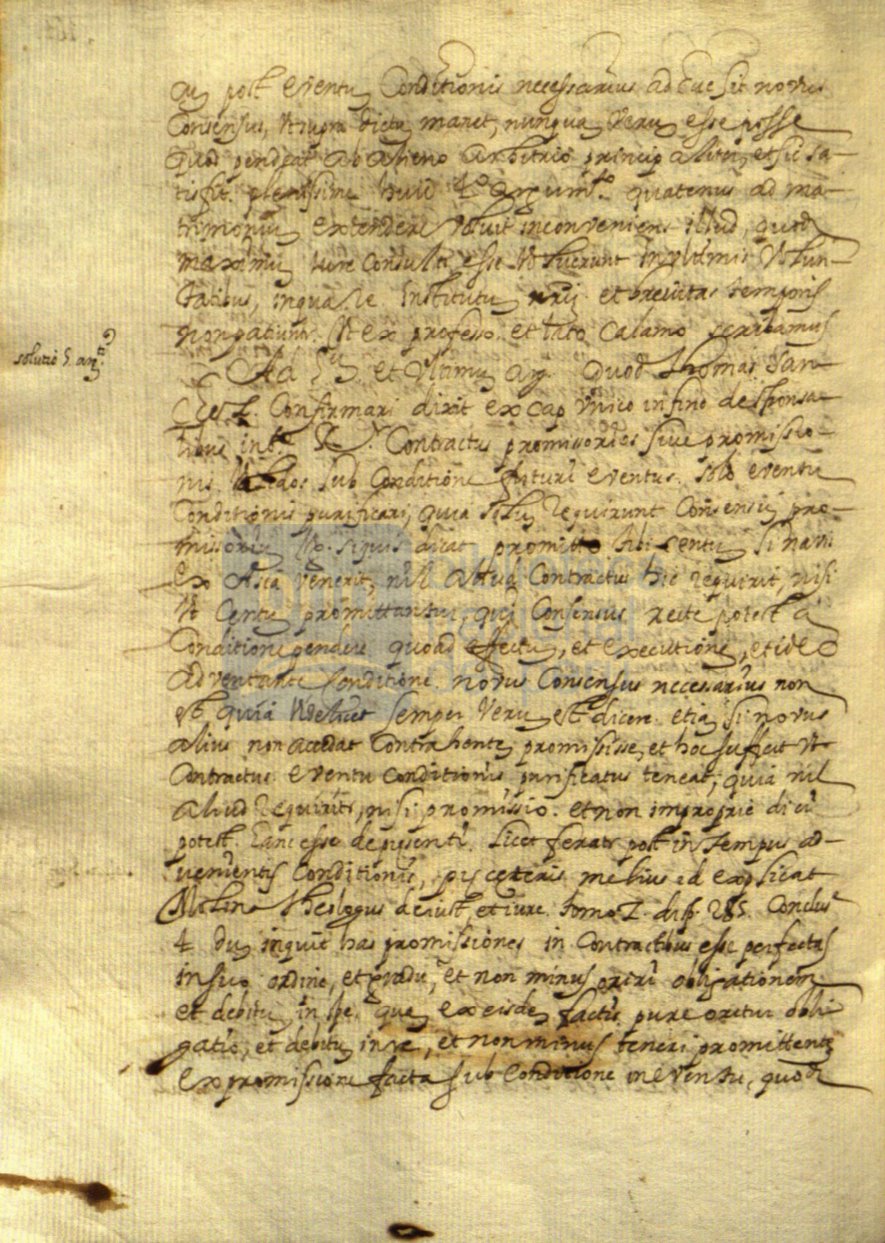 post eventu Conditionis necessarius adhuc sit novus
Consensus, ut supra dictu manet, nunqua veru esse posse
quod pendeat ab alieno arbitrio principaliter, et sic sa-
tisfit plenissime huic 4.º argum.to quatenus ad ma-
trimoniu extendere voluit inconveniens illud, quod
maximu iure Consulti esse voluerunt in ultimis volun-
tatibus, in qua re Instituti nri et brevitas temporis
non patiuntur ut ex professo et lato Calamo scribamus
solutio 5. arg.ti
Ad 5. et ultimu arg. quod Thomas San-
chez Confirmari dixit ex cap unico in fine de sponsa-
libus in 6.º Contractus promissorios sive promissio-
nis sub Conditione futuri eventus solo eventu
Conditionis purificari, quia solu requirunt Consensu pro-
missoriu si quis dicat promitto tibi centu si navis
ex Asia venerit, nihil aliud Contractus hic requirit, nisi
ut Centu promittantur, qui Consensus recte potest a
Conditione pendere quoad effectu, et executione, et ideo
adventante Conditione novus Consensus necessarius non
est quia semper veru est dicere etia si novus
alius non accedat Contrahente promisisse, et hoc sufficit ut
Contractus eventu conditionis purificatus teneat, quia nil
aliud requirit, nisi promissio. et non improprie dici
potest esse de presenti licet feratur post in tempus ad-
venientis Conditionis, ceteris melius id explicat
Molina Theologus de iust. et iure tomo 2. disp. 285. Conclus
4 du inquit has promissiones in Contractibus esse perfectas
in suo ordine, et gradu, et non minus oriri obligatione
et debitu in spe que ex eisde factis pure oritur obli
gatio, et debitu in re, et non minus teneri promittente
ex promissione facta sub Conditione in eventu, quod